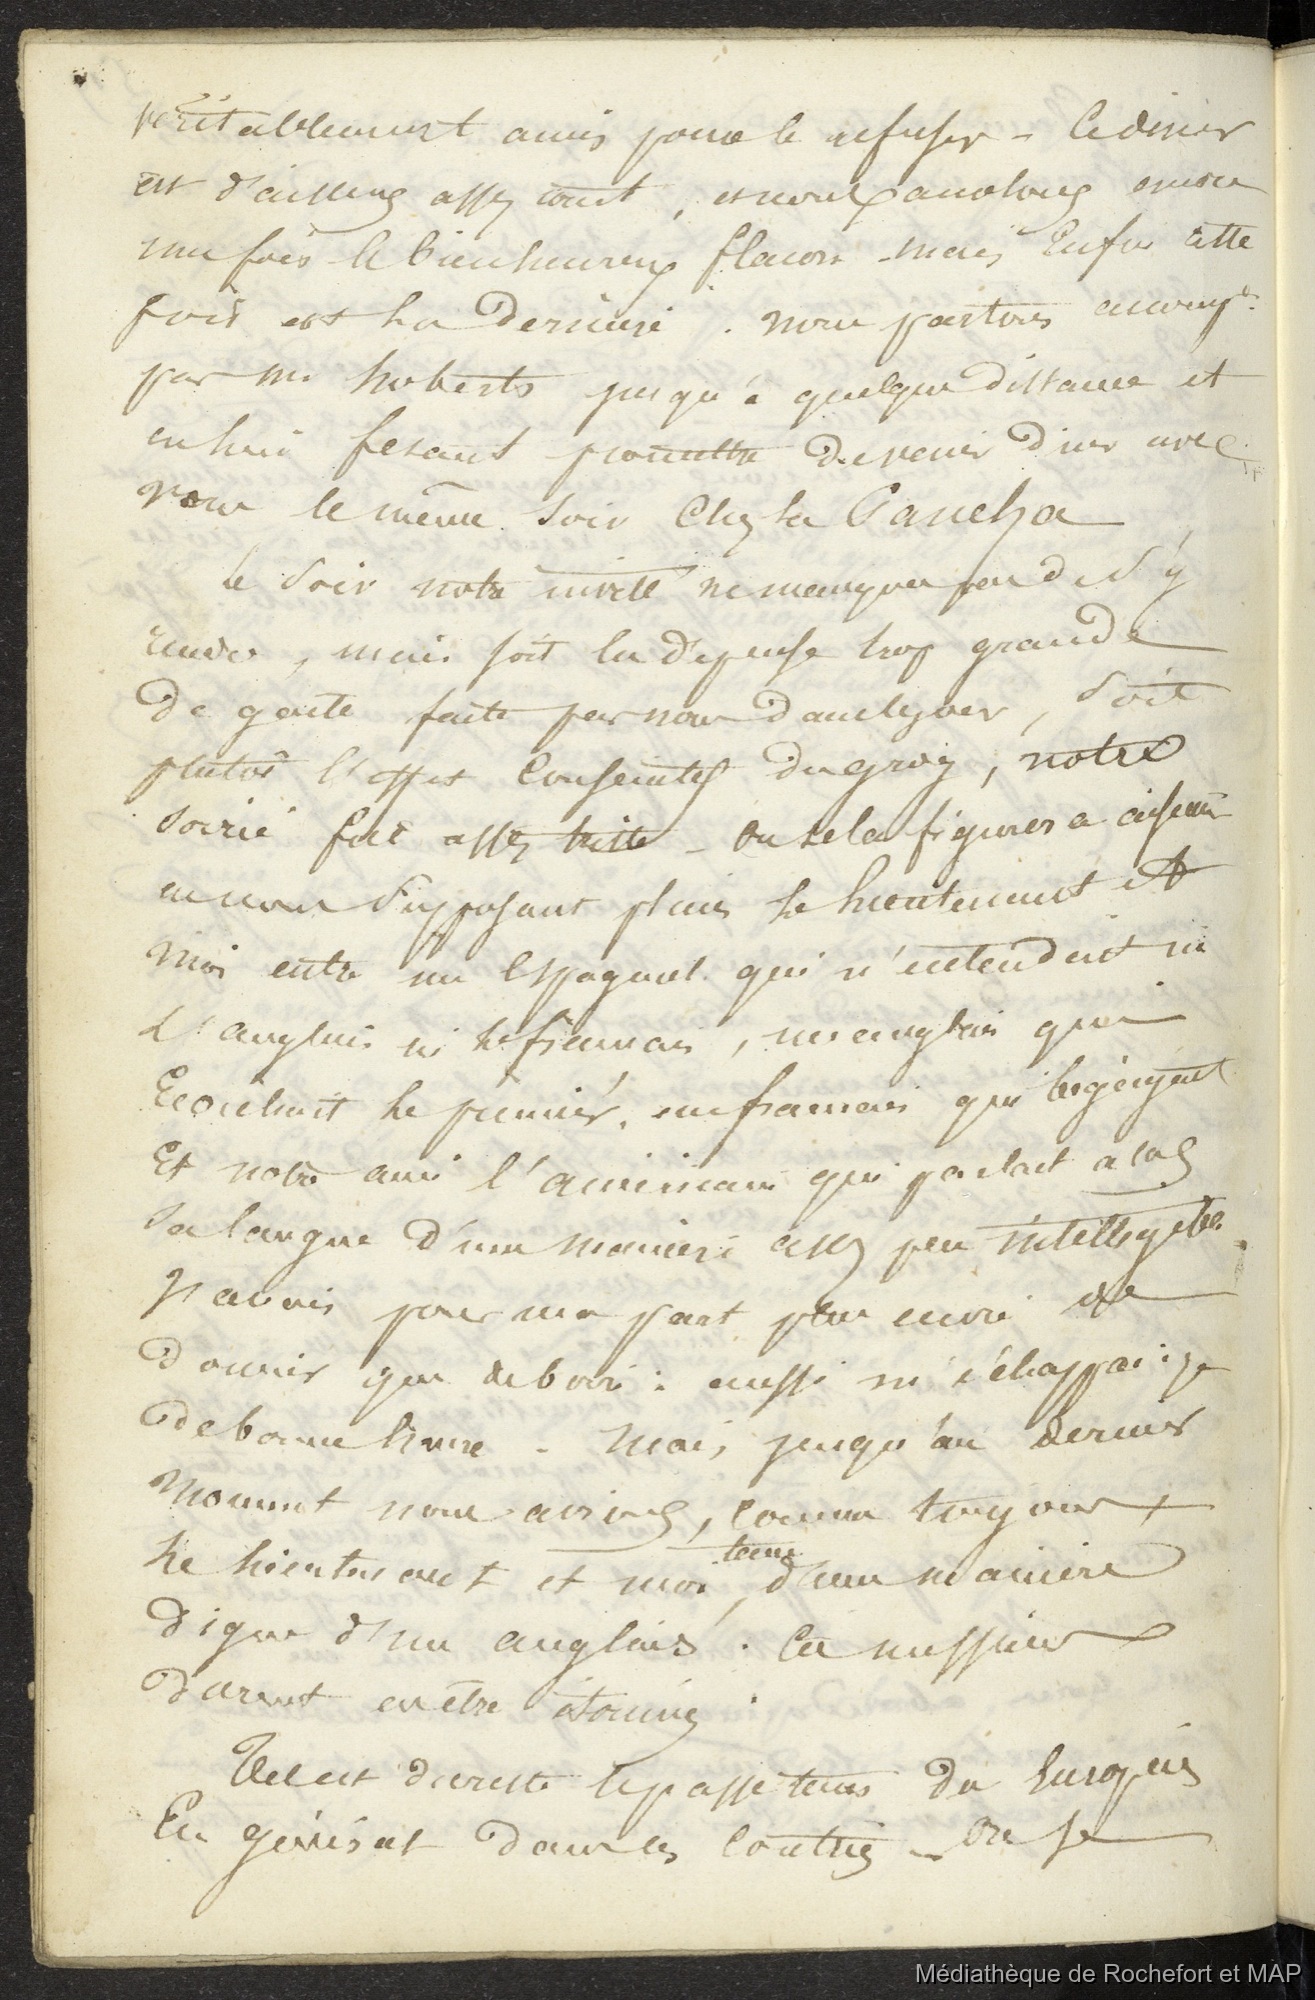 véritablement amis pour le refuser - Le diner
est d'ailleurs assez court, et nous avalons encore
une fois le bienheureux flacon - mais Enfin cette
fois est la dernière. nous partons accomp.
par mr Roberts jusqu'à quelque distance et
en lui fesant promettre de venir diner avec
nous le même soir Chez la Pancha
le Soir notre invité ne manqua pas de S'y
rendre, mais soit la dépense trop grande
De gaité faite par nous , Soit
plutôt l'effet du grog, notre
Soirée fut assez triste - On se la figurera aisemt
en nous Supposant placés le lieutenant et
Moi entre un Espagnol qui n'entendait ni
L'anglais ni le français, un anglais qui
Ecorchait le premier, un francais qui begayait
Et notre ami l'américain qui parlait alors
Sa langue d'une maniere assez peu intelligible.
J'avais pour ma part plus envie de
Dormir que de boire : aussi m'échappai-je
De bonne heure - Mais jusqu'au dernier
Moment nous avions, comme toujours
le lieutenant et moi, tenu d'une manière
Digne d'un anglais. Ces messieurs
Durent en être étonnés.
Tel est du reste le passe tems de
En général dans ces contrées - On se
Médiathèque de Rochefort et MAP